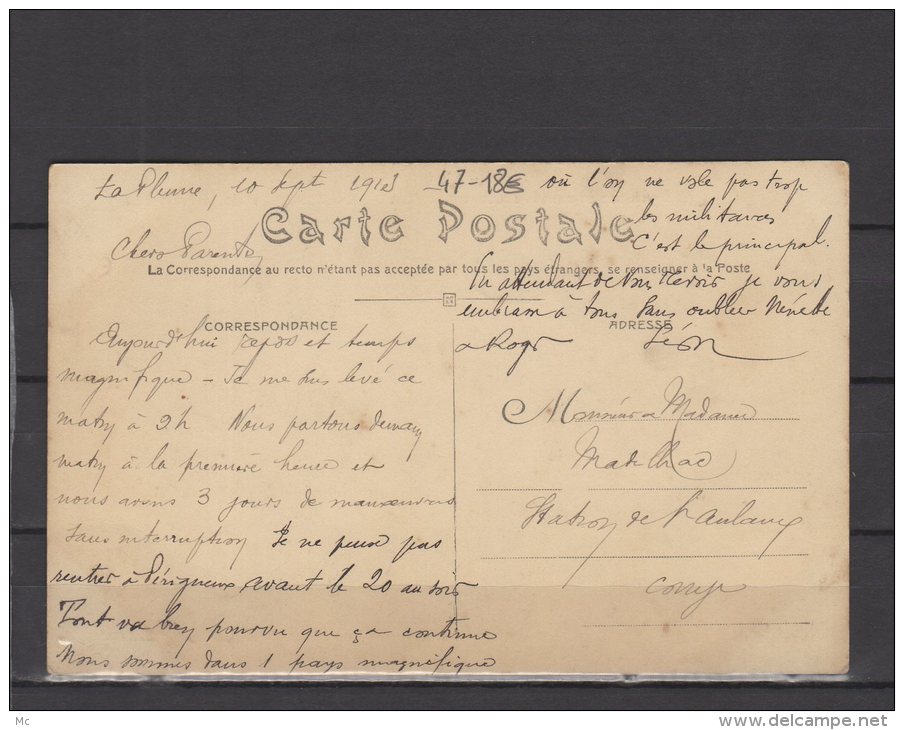 La Plume, 10 Sept 1913
47-18€
Carte Postale
Chers Parents,
La Correspondance au recto n'étant pas acceptée par tous les pays étrangers, se renseigner à la Poste
CORRESPONDANCE
Aujourd'hui repos et temps
magnifique – Je me suis levé ce
matin à 9h Nous partons demain
matin à la première heure et
nous avons 3 jours de manœuvres
sans interruption Je ne pense pas
rentrer à Périgueux avant le 20 au soir
Tout va bien pourvu que ça continue
Nous sommes dans 1 pays magnifique
où l'on ne vole pas trop
les militaires
C'est le principal.
En attendant de vous revoir je vous
embrasse à tous sans oublier Nénette
& Roger Léon
ADRESSE
Monsieur & Madame
Station de
Corrèze
Mc
www.delcampe.net